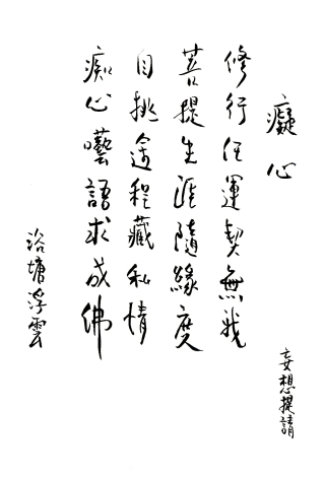 癡心
妄想提請
修行任運契無我
菩提生涯隨緣度
自挑途程藏私情
痴心囈語求成佛
浴墉浮雲